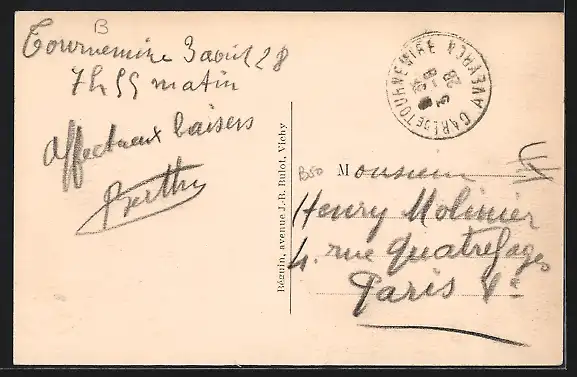 B
Tournemire 3 avril 28
7h55 matin
Affectueux baisers
Berthe
Réguin, avenue J.-B. Bulot, Vichy
GARE DE TOURNEMIRE AVEYRON
28
B50
Monsieur
Henry Molinier
4. rue Quatrefages
Paris Ve